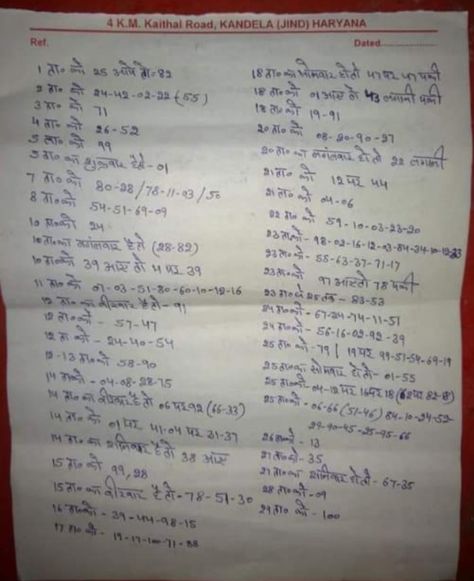 4 K.M. Kaithal Road, KANDELA (JIND) HARYANA
Ref. Dated
1 ता० को 25 ओपे तो - 82
2 ता० को 24-42-02-22 (55)
3 ता० को 71
4 ता० को 26-52
5 ता० को 99
5 ता० का शुक्रवार हैतो - 01
7 ता० को 80-28/78-11-03/50
8 ता० को 54-51-69-09
10 ता० को 24
10 ता० का मंगलवार है तो (28-82)
10 ता० को 39 आए तो 4 पर 39
11 ता० को 01-03-51-80-60-10-12-16
12 ता० का वीरवार है तो - 91
12 ता० को - 57-47
12 ता० को - 24-40-54
12-13 ता० को 58-90
14 ता० को - 04-08-28-75
14 ता० का वीरवार है तो 06 पर 92 (66-33)
14 ता० को 01 पर 41-04 पर 31-37
14 ता० का शनिवार है तो 38 आए
15 ता० को 99, 28
15 ता० का वीरवार है तो - 78-51-30
16 ता० को - 39-44-98-15
17 ता० को - 19-17-100-71-88
18 ता० का सोमवार हो तो 47 पर 47 पक्की
18 ता० को 01 आए तो 43 लगानी पक्की
18 ता० को 19-91
20 ता० को 08-20-90-27
20 ता० का मंगलवार हो तो 22 लगानी
21 ता० को 12 पर 44
21 ता० को 04-06
22 ता० को 59-10-03-23-20
23 ता० को - 98-02-16-12-03-84-34-10-12-33
23 ता० को - 55-63-37-71-17
23 ता० को 97 आए तो 78 पक्की
23 ता० से 25 तक - 83-53
24 ता० को - 67-24-74-11-51
24 ता० को - 56-16-02-92-39
25 ता० को - 79 | 19 पर 99-51-59-69-19
25 ता० का सोमवार हो तो - 01-55
25 ता० को - 04-12 पर 16 पर 18
25 ता० को - 06-66 (51-46) 84-10-24-52
29-90-45-25-95-66
26 ता० को - 13
27 ता० को - 35
27 ता० का शनिवार हो तो - 67-35
28 ता० को - 09
29 ता० को - 100